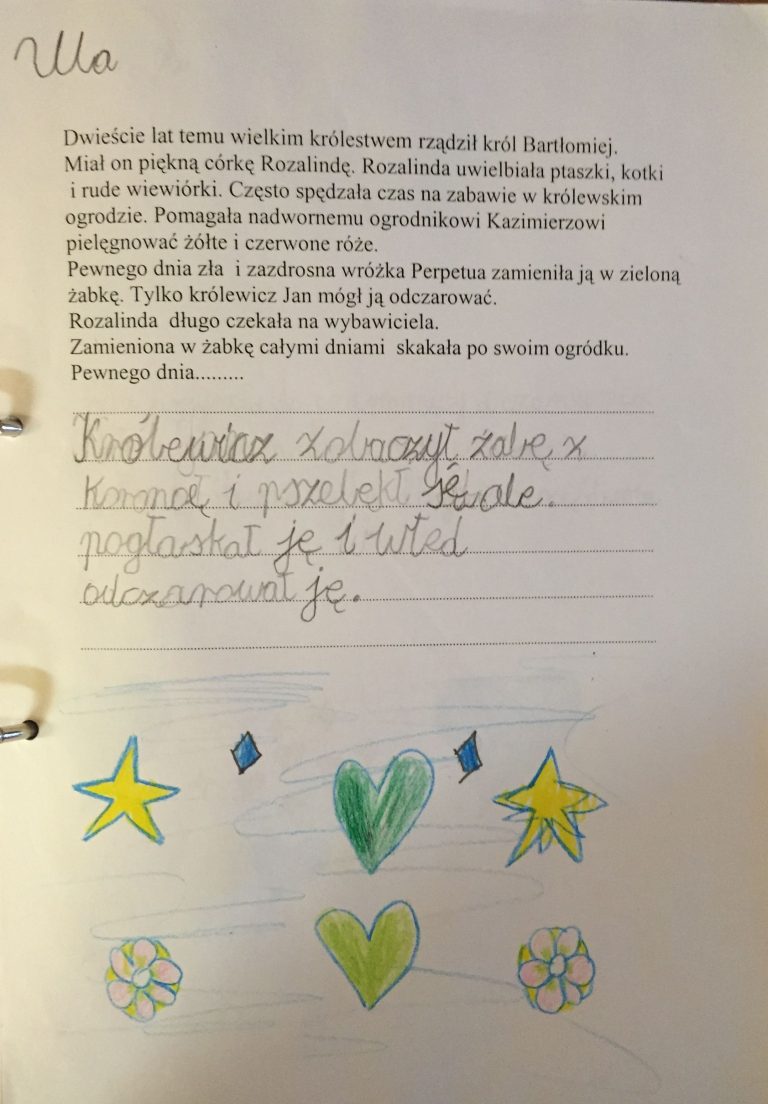 Ula
Dwieście lat temu wielkim królestwem rządził król Bartłomiej.
Miał on piękną córkę Rozalindę. Rozalinda uwielbiała ptaszki, kotki
i rude wiewiórki. Często spędzała czas na zabawie w królewskim
ogrodzie. Pomagała nadwornemu ogrodnikowi Kazimierzowi
pielęgnować żółte i czerwone róże.
Pewnego dnia zła i zazdrosna wróżka Perpetua zamieniła ją w zieloną
żabkę. Tylko królewicz Jan mógł ją odczarować.
Rozalinda długo czekała na wybawiciela.
Zamieniona w żabkę całymi dniami skakała po swoim ogródku.
Pewnego dnia.........
Królewicz zobaczył żabę z
koroną i pszelękł ale.
pogłaskał ję i wted
odczarował ję.